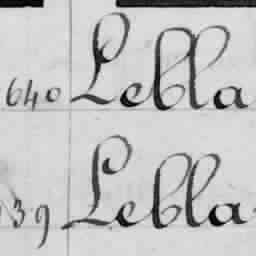 640 Lebla
39 Lebla